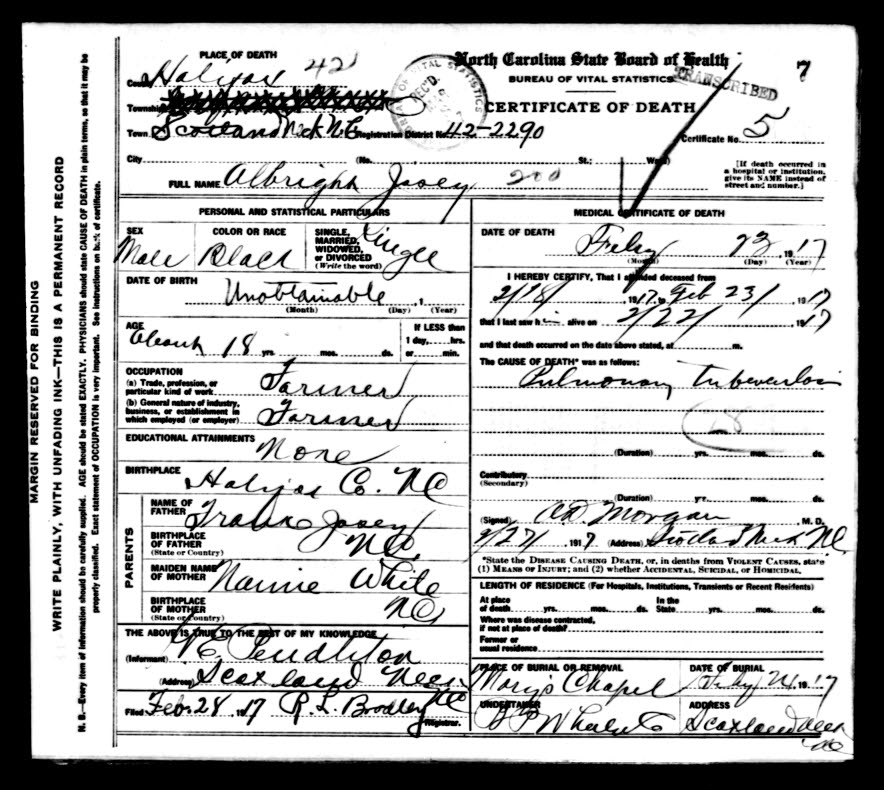 PLACE OF DEATH
County Halifax 42
Township
Town Scotland Neck N.C. Registration District No. 42-2290
City (No. St.; Ward)
FULL NAME Albright Josey 200
North Carolina State Board of Health
BUREAU OF VITAL STATISTICS
CERTIFICATE OF DEATH
TRANSCRIBED
7
Certificate No. 5
[If death occurred in
a hospital or institution,
give its NAME instead of
street and number.]
PERSONAL AND STATISTICAL PARTICULARS
SEX
Male
COLOR OR RACE
Black
SINGLE,
MARRIED,
WIDOWED,
or DIVORCED
(Write the word)
Single
DATE OF BIRTH
Unobtainable, 1
(Month) (Day) (Year)
AGE
About 18 yrs. mos. ds.
If LESS than
1 day, hrs.
or min.
OCCUPATION
(a) Trade, profession, or
particular kind of work. Farmer
(b) General nature of industry,
business, or establishment in
which employed (or employer) Farmer
EDUCATIONAL ATTAINMENTS
None
BIRTHPLACE
Halifax Co. NC
PARENTS
NAME OF
FATHER Frank Josey
BIRTHPLACE
OF FATHER
(State or Country) NC
MAIDEN NAME
OF MOTHER Nannie White
BIRTHPLACE
OF MOTHER
(State or Country) NC
THE ABOVE IS TRUE TO THE BEST OF MY KNOWLEDGE
(Informant) Pendleton
(Address) Scotland Neck NC
Filed Feb. 28 1917 R. L.
Registrar.
MEDICAL CERTIFICATE OF DEATH
DATE OF DEATH
Feby 23, 1917
(Month) (Day) (Year)
I HEREBY CERTIFY, That I attended deceased from
2/18/ 1917 to Feb 23/, 1917
that I last saw him alive on 2/22/ 1917
and that death occurred on the date above stated, at m.
The CAUSE OF DEATH* was as follows:
Pulmonary Tuberculosis
28
(Duration) yrs. mos. ds.
Contributory
(Secondary)
(Duration) yrs. mos. ds.
(Signed) Morgan, M. D.
2/27/, 1917 (Address) Scotland Neck NC
*State the DISEASE CAUSING DEATH, or, in deaths from VIOLENT CAUSES, state
(1) MEANS OF INJURY; and (2) whether ACCIDENTAL, SUICIDAL, OR HOMICIDAL.
LENGTH OF RESIDENCE (For Hospitals, Institutions, Transients or Recent Residents)
At place
of death yrs. mos. ds.
In the
State yrs. mos. ds.
Where was disease contracted,
if not at place of death?
Former or
usual residence
PLACE OF BURIAL OR REMOVAL
Mary's Chapel
DATE OF BURIAL
Feby 24 1917
UNDERTAKER
ADDRESS
Scotland Neck
NC
MARGIN RESERVED FOR BINDING
WRITE PLAINLY, WITH UNFADING INK—THIS IS A PERMANENT RECORD
N. B.—Every item of information should be carefully supplied. AGE should be stated EXACTLY. PHYSICIANS should state CAUSE OF DEATH in plain terms, so that it may be
properly classified. Exact statement of OCCUPATION is very important. See instructions on back of certificate.